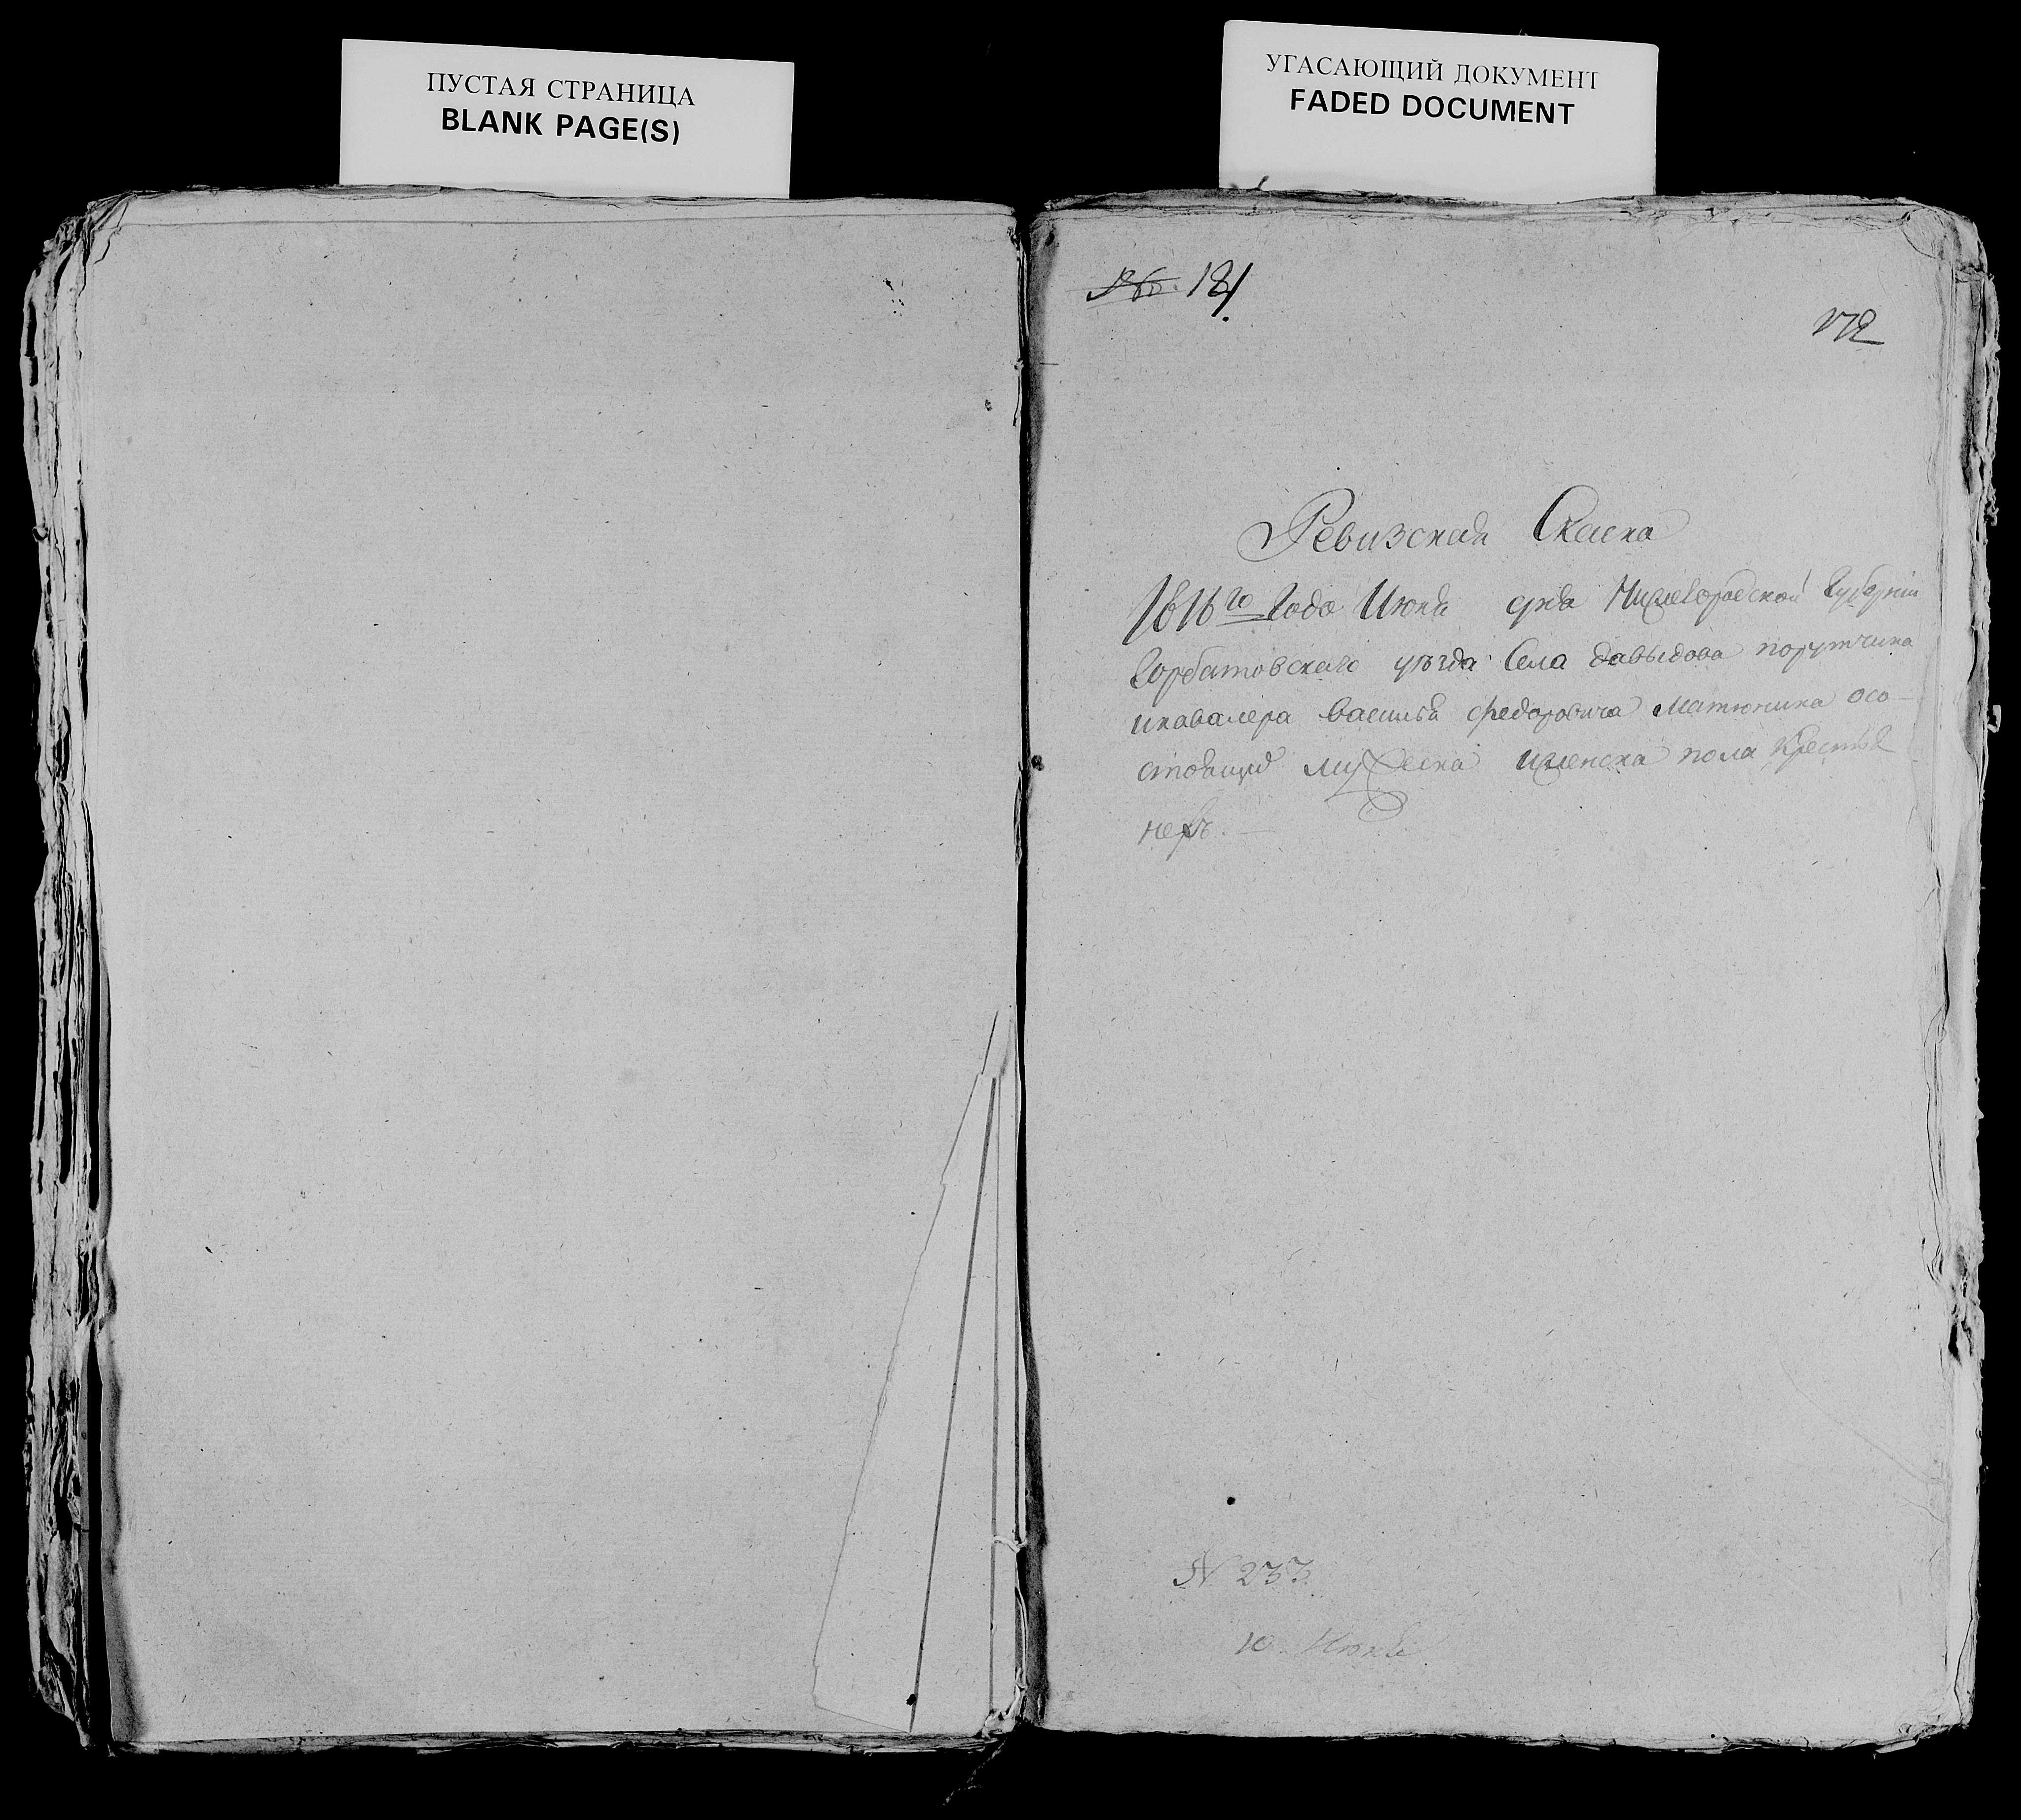 ПУСТАЯ СТРАНИЦА
BLANK PAGE(S)
УГАСАЮЩИЙ ДОКУМЕНТ
FADED DOCUMENT
181.
172
Ревизская Скаска
1816го Года Июня дня Нижегородской Губернiи
Горбатовскаго уѣзда Села давыдова порутчика
икавалера василья федоровича Матюнина осо-
стоящих мужеска иженска пола Крестья
нехъ. —
N 233.
10 Июня